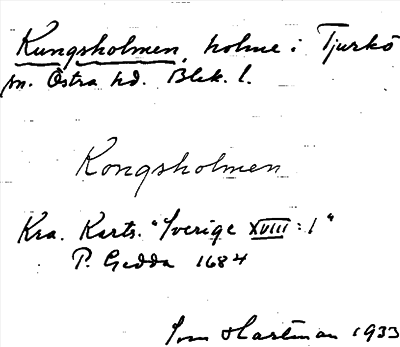 Kungsholmen, holme i Tjurkö
sn. Östra hd. Blek. l.
Kongsholmen
Kra. Karts. "Sverige XVIII:1"
P. Gedda 1684
Hartman 1933